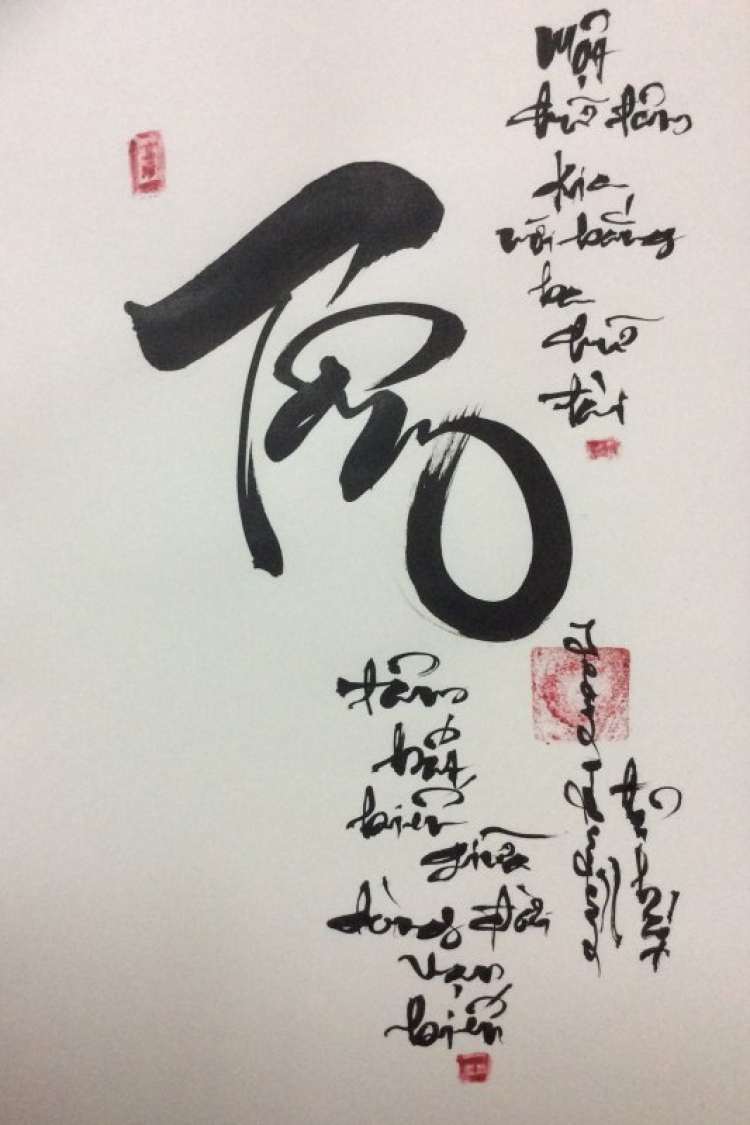 Một
chữ tâm
kia
mới bằng
ba
chữ
tài
Tâm
tâm
bất
biến
giữa
dòng đời
vạn
biến